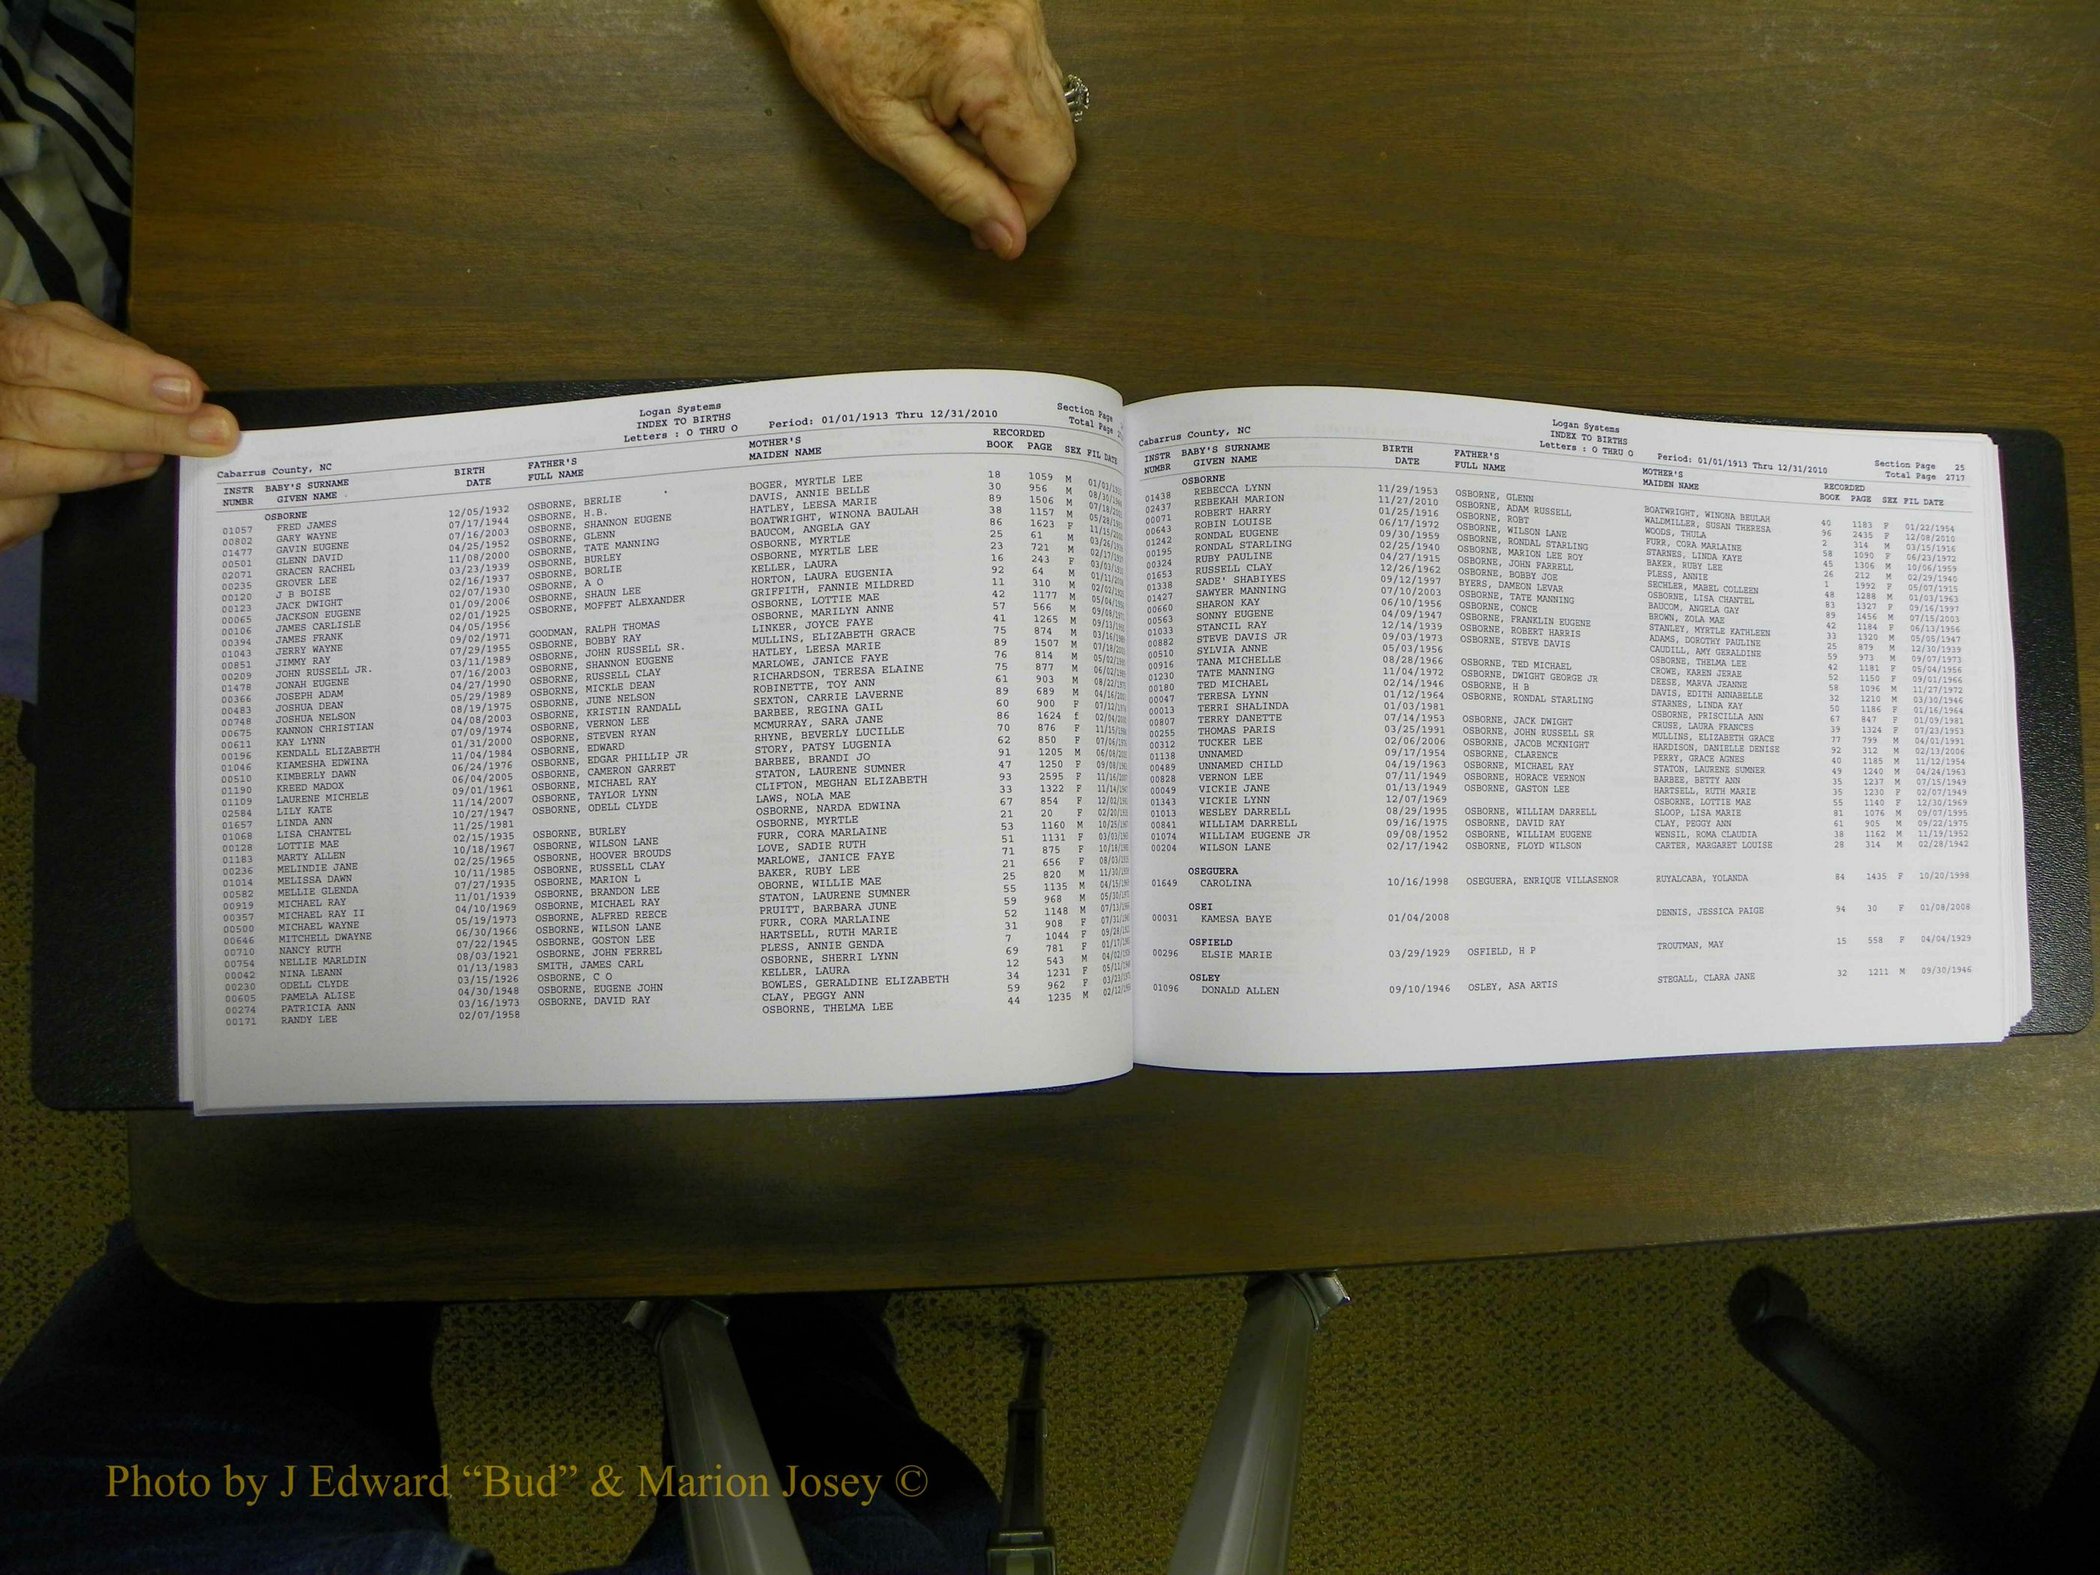 Cabarrus County, NC
Logan Systems
INDEX TO BIRTHS
Letters : O THRU O
Period: 01/01/1913 Thru 12/31/2010
Section Page
Total Page
INSTR NUMBR BABY'S SURNAME GIVEN NAME BIRTH DATE FATHER'S FULL NAME MOTHER'S MAIDEN NAME RECORDED BOOK PAGE SEX FIL DATE
OSBORNE
01057 FRED JAMES 12/05/1932 OSBORNE, BERLIE BOGER, MYRTLE LEE 18 1059 M
00802 GARY WAYNE 07/17/1944 OSBORNE, H.B. DAVIS, ANNIE BELLE 30 956 M
01477 GAVIN EUGENE 07/16/2003 OSBORNE, SHANNON EUGENE HATLEY, LEESA MARIE 89 1506 M
00501 GLENN DAVID 04/25/1952 OSBORNE, GLENN BOATWRIGHT, WINONA BEULAH 38 1157 M
02071 GRACEN RACHEL 11/08/2000 OSBORNE, TATE MANNING BAUCOM, ANGELA GAY 86 1623 F
00235 GROVER LEE 03/23/1939 OSBORNE, BURLEY OSBORNE, MYRTLE 25 61 M
00120 J B BOISE 02/16/1937 OSBORNE, BORLIE OSBORNE, MYRTLE LEE 23 721 M
00123 JACK DWIGHT 02/07/1930 OSBORNE, A O KELLER, LAURA 16 243 F
00065 JACKSON EUGENE 01/09/2006 OSBORNE, SHAUN LEE HORTON, LAURA EUGENIA 92 64 M
00106 JAMES CARLISLE 02/01/1925 OSBORNE, MOFFET ALEXANDER GRIFFITH, FANNIE MILDRED 11 310 M
00394 JAMES FRANK 04/05/1956 OSBORNE, LOTTIE MAE 42 1177 M
01043 JERRY WAYNE 09/02/1971 GOODMAN, RALPH THOMAS OSBORNE, MARILYN ANNE 57 566 M
00851 JIMMY RAY 07/29/1955 OSBORNE, BOBBY RAY LINKER, JOYCE FAYE 41 1265 M
00209 JOHN RUSSELL JR. 03/11/1989 OSBORNE, JOHN RUSSELL SR. MULLINS, ELIZABETH GRACE 75 874 M
01478 JONAH EUGENE 07/16/2003 OSBORNE, SHANNON EUGENE HATLEY, LEESA MARIE 89 1507 M
00366 JOSEPH ADAM 04/27/1990 OSBORNE, RUSSELL CLAY MARLOWE, JANICE FAYE 76 814 M
00483 JOSHUA DEAN 05/29/1989 OSBORNE, MICKLE DEAN RICHARDSON, TERESA ELAINE 75 877 M
00748 JOSHUA NELSON 08/19/1975 OSBORNE, JUNE NELSON ROBINETTE, TOY ANN 61 903 M
00675 KANNON CHRISTIAN 04/08/2003 OSBORNE, KRISTIN RANDALL SEXTON, CARRIE LAVERNE 89 689 M
00611 KAY LYNN 07/09/1974 OSBORNE, VERNON LEE BARBEE, REGINA GAIL 60 900 F
00196 KENDALL ELIZABETH 01/31/2000 OSBORNE, STEVEN RYAN MCMURRAY, SARA JANE 86 1624 f
01046 KIAMESHA EDWINA 11/04/1984 OSBORNE, EDWARD RHYNE, BEVERLY LUCILLE 70 876 F
00510 KIMBERLY DAWN 06/24/1976 OSBORNE, EDGAR PHILLIP JR STORY, PATSY LUGENIA 62 850 F
01190 KREED MADOX 06/04/2005 OSBORNE, CAMERON GARRET BARBEE, BRANDI JO 91 1205 M
01109 LAURENE MICHELE 09/01/1961 OSBORNE, MICHAEL RAY STATON, LAURENE SUMNER 47 1250 F
02584 LILY KATE 11/14/2007 OSBORNE, TAYLOR LYNN CLIFTON, MEGHAN ELIZABETH 93 2595 F
01657 LINDA ANN 10/27/1947 OSBORNE, ODELL CLYDE LAWS, NOLA MAE 33 1322 F
01068 LISA CHANTEL 11/25/1981 OSBORNE, NARDA EDWINA 67 854 F
00128 LOTTIE MAE 02/15/1935 OSBORNE, BURLEY OSBORNE, MYRTLE 21 20 F
01183 MARTY ALLEN 10/18/1967 OSBORNE, WILSON LANE FURR, CORA MARLAINE 53 1160 M
00236 MELINDIE JANE 02/25/1965 OSBORNE, HOOVER BROUDS LOVE, SADIE RUTH 51 1131 F
01014 MELISSA DAWN 10/11/1985 OSBORNE, RUSSELL CLAY MARLOWE, JANICE FAYE 71 875 F
00582 MELLIE GLENDA 07/27/1935 OSBORNE, MARION L BAKER, RUBY LEE 21 656 F
00919 MICHAEL RAY 11/01/1939 OSBORNE, BRANDON LEE OBORNE, WILLIE MAE 25 820 M
00357 MICHAEL RAY II 04/10/1969 OSBORNE, MICHAEL RAY STATON, LAURENE SUMNER 55 1135 M
00500 MICHAEL WAYNE 05/19/1973 OSBORNE, ALFRED REECE PRUITT, BARBARA JUNE 59 968 M
00646 MITCHELL DWAYNE 06/30/1966 OSBORNE, WILSON LANE FURR, CORA MARLAINE 52 1148 M
00710 NANCY RUTH 07/22/1945 OSBORNE, GOSTON LEE HARTSELL, RUTH MARIE 31 908 F
00754 NELLIE MARLDIN 08/03/1921 OSBORNE, JOHN FERREL PLESS, ANNIE GENDA 7 1044 F
00042 NINA LEANN 01/13/1983 SMITH, JAMES CARL OSBORNE, SHERRI LYNN 69 781 F
00230 ODELL CLYDE 03/15/1926 OSBORNE, C O KELLER, LAURA 12 543 M
00605 PAMELA ALISE 04/30/1948 OSBORNE, EUGENE JOHN BOWLES, GERALDINE ELIZABETH 34 1231 F
00274 PATRICIA ANN 03/16/1973 OSBORNE, DAVID RAY CLAY, PEGGY ANN 59 962 F
00171 RANDY LEE 02/07/1958 OSBORNE, THELMA LEE 44 1235 M
Cabarrus County, NC
Logan Systems
INDEX TO BIRTHS
Letters : O THRU O
Period: 01/01/1913 Thru 12/31/2010
Section Page 25
Total Page 2717
INSTR NUMBR BABY'S SURNAME GIVEN NAME BIRTH DATE FATHER'S FULL NAME MOTHER'S MAIDEN NAME RECORDED BOOK PAGE SEX FIL DATE
OSBORNE
01438 REBECCA LYNN 11/29/1953 OSBORNE, GLENN BOATWRIGHT, WINONA BEULAH 40 1183 F 01/22/1954
02437 REBEKAH MARION 11/27/2010 OSBORNE, ADAM RUSSELL WALDMILLER, SUSAN THERESA 96 2435 F 12/08/2010
00071 ROBERT HARRY 01/25/1916 OSBORNE, ROBT WOODS, THULA 2 314 M 03/15/1916
00643 ROBIN LOUISE 06/17/1972 OSBORNE, WILSON LANE FURR, CORA MARLAINE 58 1090 F 06/23/1972
01242 RONDAL EUGENE 09/30/1959 OSBORNE, RONDAL STARLING STARNES, LINDA KAYE 45 1306 M 10/06/1959
00195 RONDAL STARLING 02/25/1940 OSBORNE, MARION LEE ROY BAKER, RUBY LEE 26 212 M 02/29/1940
00324 RUBY PAULINE 04/27/1915 OSBORNE, JOHN FARRELL PLESS, ANNIE 1 1992 F 05/07/1915
01653 RUSSELL CLAY 12/26/1962 OSBORNE, BOBBY JOE SECHLER, MABEL COLLEEN 48 1288 M 01/03/1963
01338 SADE' SHABIYES 09/12/1997 BYERS, DAMEON LEVAR OSBORNE, LISA CHANTEL 83 1327 F 09/16/1997
01427 SAWYER MANNING 07/10/2003 OSBORNE, TATE MANNING BAUCOM, ANGELA GAY 89 1456 M 07/15/2003
00660 SHARON KAY 06/10/1956 OSBORNE, CONCE BROWN, ZOLA MAE 42 1184 F 06/13/1956
00563 SONNY EUGENE 04/09/1947 OSBORNE, FRANKLIN EUGENE STANLEY, MYRTLE KATHLEEN 33 1320 M 05/05/1947
01033 STANCIL RAY 12/14/1939 OSBORNE, ROBERT HARRIS ADAMS, DOROTHY PAULINE 25 879 M 12/30/1939
00882 STEVE DAVIS JR 09/03/1973 OSBORNE, STEVE DAVIS CAUDILL, AMY GERALDINE 59 973 M 09/07/1973
00510 SYLVIA ANNE 05/03/1956 OSBORNE, THELMA LEE 42 1181 F 05/04/1956
00916 TANA MICHELLE 08/28/1966 OSBORNE, TED MICHAEL CROWE, KAREN JERAE 52 1150 F 09/01/1966
01230 TATE MANNING 11/04/1972 OSBORNE, DWIGHT GEORGE JR DEESE, MARVA JEANNE 58 1096 M 11/27/1972
00180 TED MICHAEL 02/14/1946 OSBORNE, H B DAVIS, EDITH ANNABELLE 32 1210 M 03/30/1946
00047 TERESA LYNN 01/12/1964 OSBORNE, RONDAL STARLING STARNES, LINDA KAY 50 1186 F 01/16/1964
00013 TERRI SHALINDA 01/03/1981 OSBORNE, PRISCILLA ANN 67 847 F 01/09/1981
00807 TERRY DANETTE 07/14/1953 OSBORNE, JACK DWIGHT CRUSE, LAURA FRANCES 39 1324 F 07/23/1953
00255 THOMAS PARIS 03/25/1991 OSBORNE, JOHN RUSSELL SR MULLINS, ELIZABETH GRACE 77 799 M 04/01/1991
00312 TUCKER LEE 02/06/2006 OSBORNE, JACOB MCKNIGHT HARDISON, DANIELLE DENISE 92 312 M 02/13/2006
01138 UNNAMED 09/17/1954 OSBORNE, CLARENCE PERRY, GRACE AGNES 40 1185 M 11/12/1954
00489 UNNAMED CHILD 04/19/1963 OSBORNE, MICHAEL RAY STATON, LAURENE SUMNER 49 1240 M 04/24/1963
00828 VERNON LEE 07/11/1949 OSBORNE, HORACE VERNON BARBEE, BETTY ANN 35 1237 M 07/15/1949
00049 VICKIE JANE 01/13/1949 OSBORNE, GASTON LEE HARTSELL, RUTH MARIE 35 1230 F 02/07/1949
01343 VICKIE LYNN 12/07/1969 OSBORNE, LOTTIE MAE 55 1140 F 12/30/1969
01013 WESLEY DARRELL 08/29/1995 OSBORNE, WILLIAM DARRELL SLOOP, LISA MARIE 81 1076 M 09/07/1995
00841 WILLIAM DARRELL 09/16/1975 OSBORNE, DAVID RAY CLAY, PEGGY ANN 61 905 M 09/22/1975
01074 WILLIAM EUGENE JR 09/08/1952 OSBORNE, WILLIAM EUGENE WENSIL, ROMA CLAUDIA 38 1162 M 11/19/1952
00204 WILSON LANE 02/17/1942 OSBORNE, FLOYD WILSON CARTER, MARGARET LOUISE 28 314 M 02/28/1942
OSEGUERA
01649 CAROLINA 10/16/1998 OSEGUERA, ENRIQUE VILLASENOR RUYALCABA, YOLANDA 84 1435 F 10/20/1998
OSEI
00031 KAMESA BAYE 01/04/2008 DENNIS, JESSICA PAIGE 94 30 F 01/08/2008
OSFIELD
00296 ELSIE MARIE 03/29/1929 OSFIELD, H P TROUTMAN, MAY 15 558 F 04/04/1929
OSLEY
01096 DONALD ALLEN 09/10/1946 OSLEY, ASA ARTIS STEGALL, CLARA JANE 32 1211 M 09/30/1946
Photo by J Edward “Bud” & Marion Josey ©